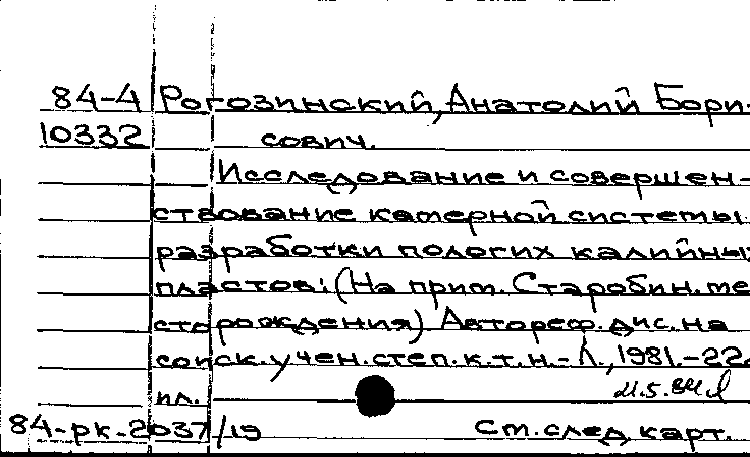 84-4 Рогозинский, Анатолий Бори-
10332 сович.
Исследование и совершен-
ствование камерной системы
разработки пологих калийных
пластов: (На прим. Старобин. ме
сторождения) Автореф. дис. на
соиск. учен. степ. к. т. н. - Л., 1981. - 22.
ил.
84-рк-2037/19 См. след карт.